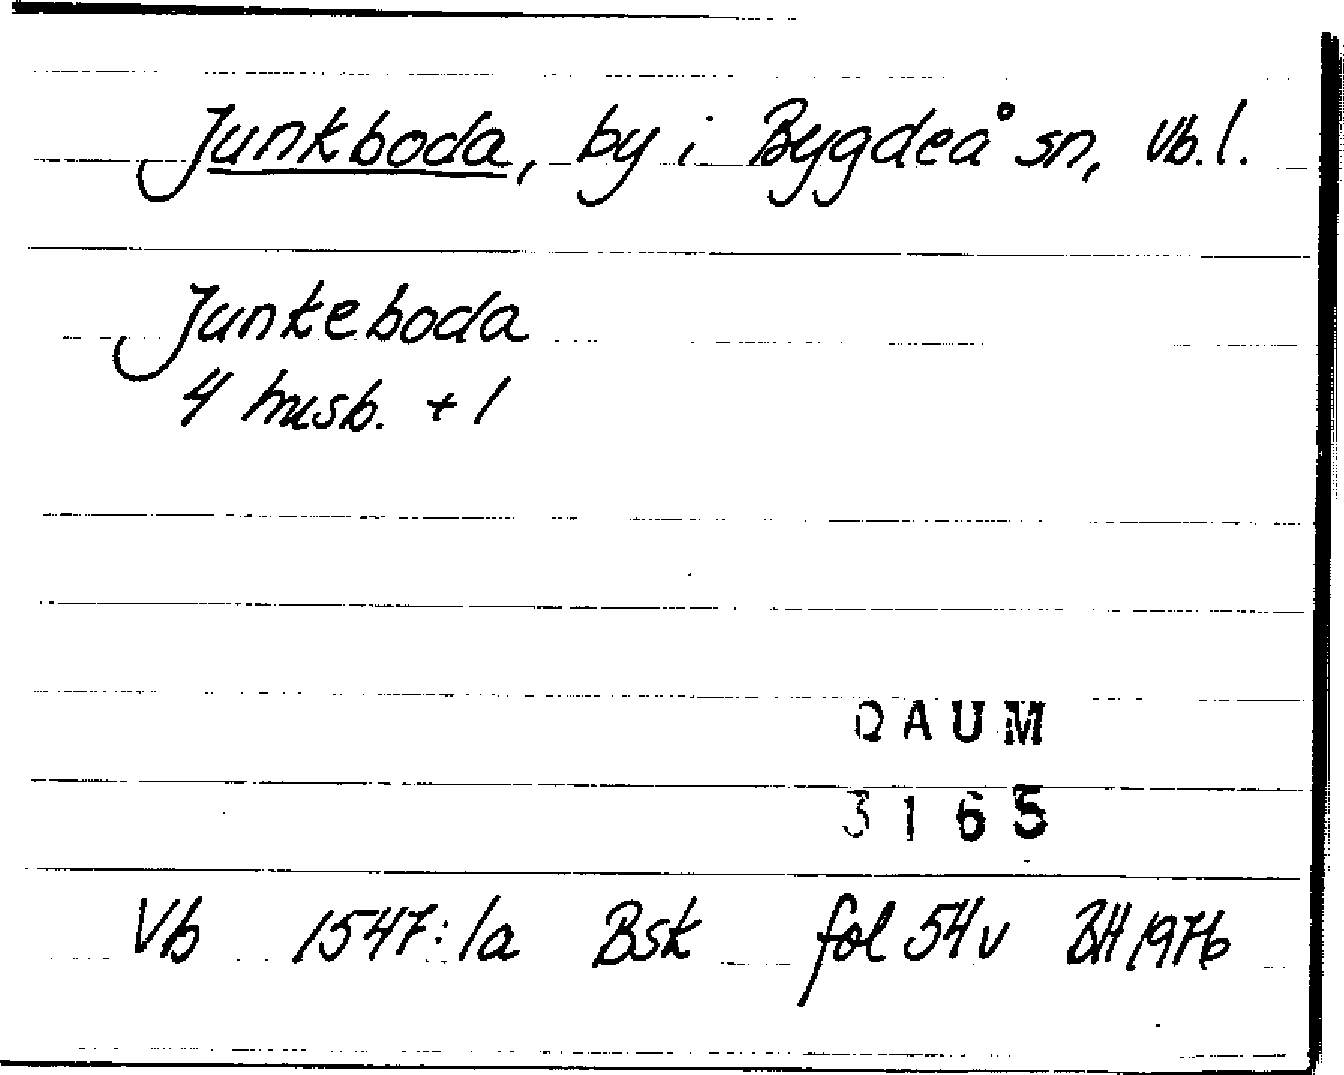 Junkboda, by i Bygdeå sn, Vb. l.
Junkeboda
4 husb. + 1
DAUM
3165
Vb 1547:1a Bsk fol 54v BH 1976